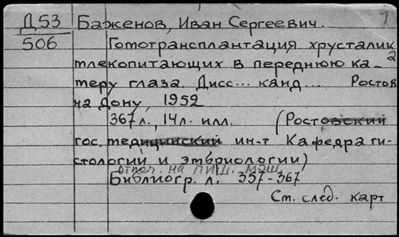 Д53 Баженов, Иван Сергеевич.
506 Гомотрансплантация хрусталик
млекопитающих в переднюю ка-
меру глаза. Дисс... канд... Ростов
на Дону, 1952
367 л., 14 л. илл. (Ростовский
гос. медицинский ин-т Кафедра ги-
стологии и эмбриологии)
отпеч. на пиш. маш.
Библиогр. л. 357-367
См. след. карт